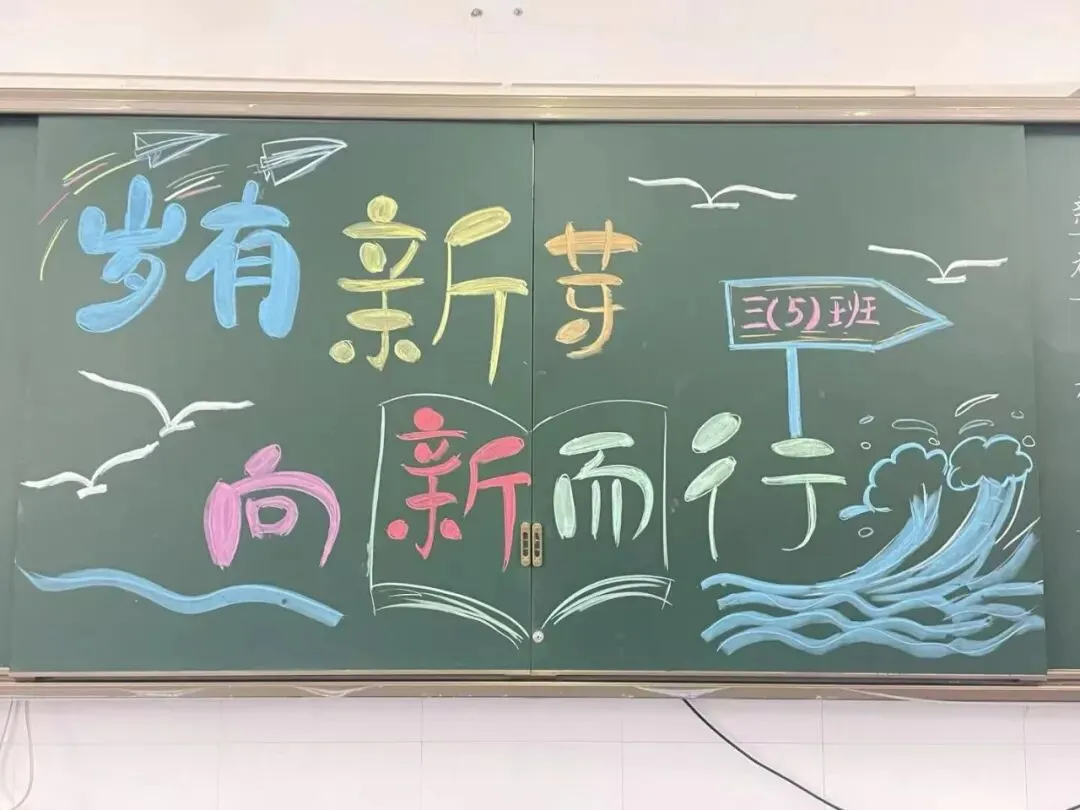 岁有新芽
三(5)班
向新而行